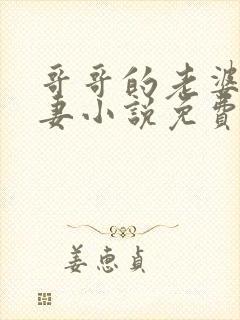 哥哥的老婆
妻小說免費
姜惠貞